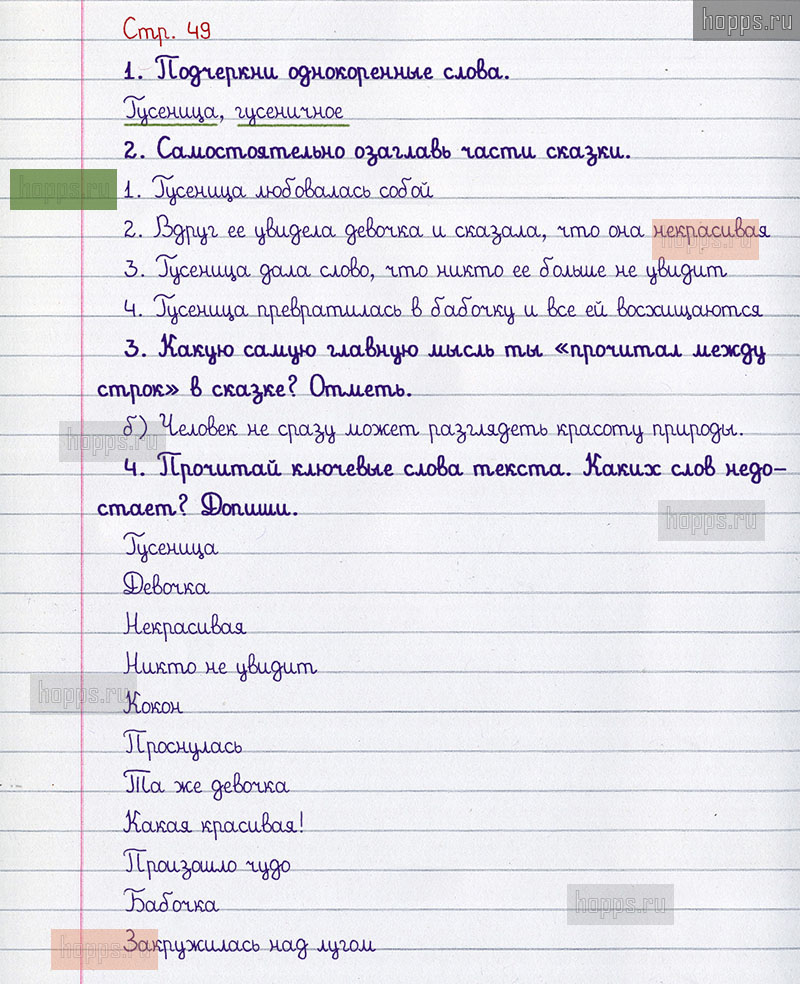 hopps.ru
Стр. 49
1. Подчеркни однокоренные слова.
Гусеница, гусеничное
2. Самостоятельно озаглавь части сказки.
hopps.ru
1. Гусеница любовалась собой
2. Вдруг ее увидела девочка и сказала, что она некрасивая
hopps.ru
3. Гусеница дала слово, что никто ее больше не увидит
4. Гусеница превратилась в бабочку и все ей восхищаются
3. Какую самую главную мысль ты «прочитал между
строк» в сказке? Отметь.
б) Человек не сразу может разглядеть красоту природы.
hopps.ru
4. Прочитай ключевые слова текста. Каких слов недо-
стает? Допиши.
hopps.ru
Гусеница
Девочка
Некрасивая
Никто не увидит
hopps.ru
Кокон
Проснулась
Та же девочка
Какая красивая!
Произошло чудо
Бабочка
hopps.ru
Закружилась над лугом
hopps.ru